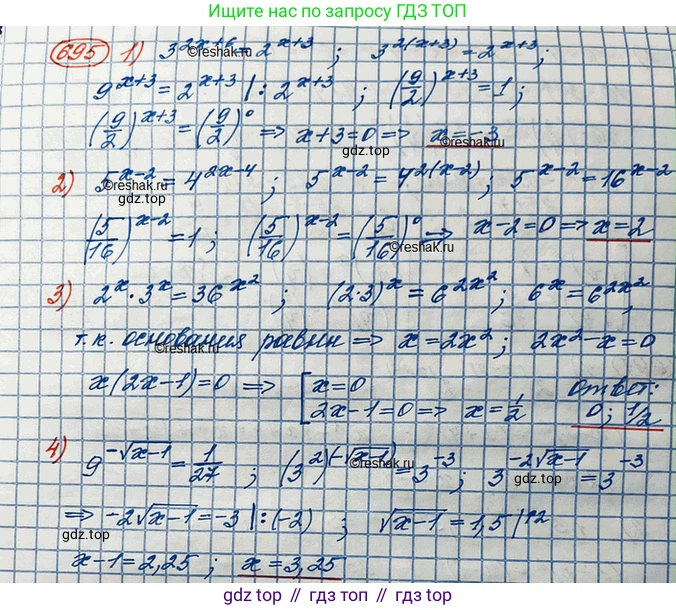 Ищите нас по запросу ГДЗ ТОП
695 1) 3^(2x+6) = 2^(x+3) ; 3^(2(x+3)) = 2^(x+3);
©reshak.ru
9^(x+3) = 2^(x+3) |: 2^(x+3) ; (9/2)^(x+3) = 1;
(9/2)^(x+3) = (9/2)^0 => x+3=0 => x=-3
gdz.top
2) 5^(x-2) = 4^(2x-4) ; 5^(x-2) = 4^(2(x-2)) ; 5^(x-2) = 16^(x-2)
©reshak.ru gdz.top
(5/16)^(x-2) = 1 ; (5/16)^(x-2) = (5/16)^0 => x-2=0 => x=2
©reshak.ru
3) 2^x · 3^x = 36^(x^2) ; (2·3)^x = 6^(2x^2) ; 6^x = 6^(2x^2);
gdz.top
т.к. основания равны => x=2x^2; 2x^2-x=0
©reshak.ru
x(2x-1)=0 => [x=0
2x-1=0 => x=1/2
ответ:
0; 1/2
gdz.top
4) 9^(-√(x-1)) = 1/27 ; (3^2)^(-√(x-1)) = 3^(-3) ; 3^(-2√(x-1)) = 3^(-3)
©reshak.ru
gdz.top
=> -2√(x-1) = -3 |:(-2) ; √(x-1) = 1,5 |↑2
gdz.top
x-1=2,25 ; x=3,25
©reshak.ru
gdz.top // гдз.топ // gdz.top // гдз.топ